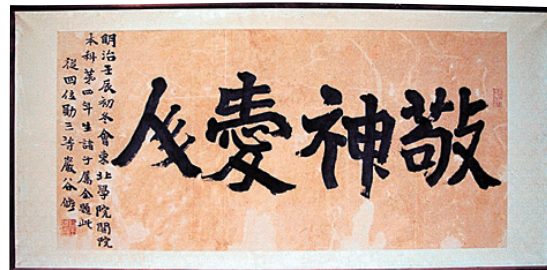 敬神愛人
明治壬辰初冬會東北學院開院
本科第四年生諸子属余題此
從四位勲三等巖谷修